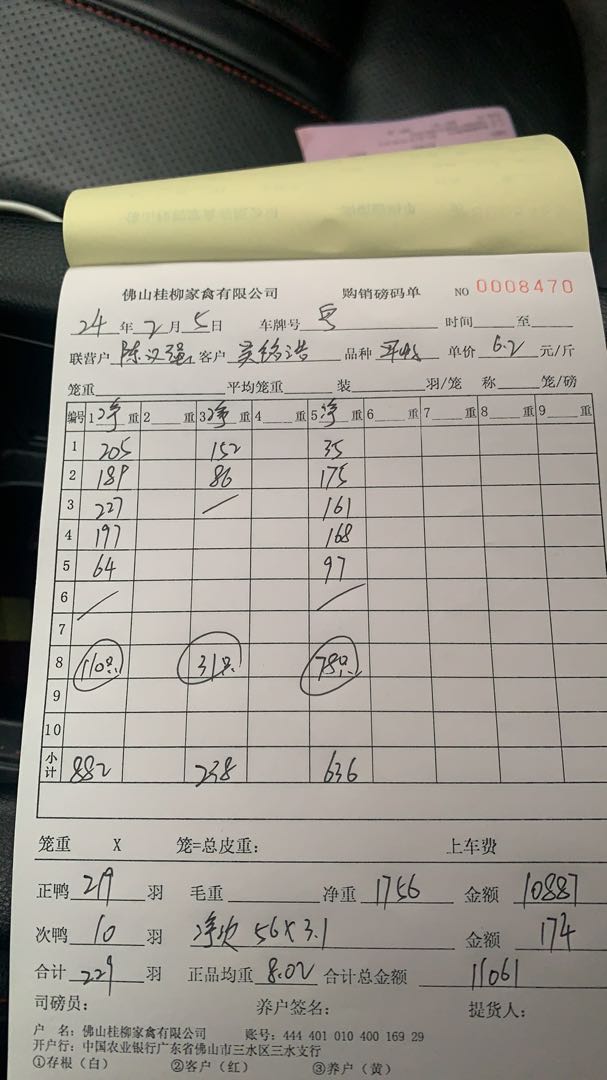 佛山桂柳家禽有限公司 购销磅码单 NO 0008470
24年2月5日 车牌号 时间 至
联营户 陈汉强 客户 品种 单价 6.2 元/斤
笼重 平均笼重 装 羽/笼 称 笼/磅
编号 1净重 2重 3净重 4重 5净重 6重 7重 8重 9重
1 205 152 35
2 189 86 175
3 227 161
4 197 168
5 64 97
6
7
8 110只 31只 78只
9
10
小计 882 238 636
笼重 X 笼=总皮重: 上车费
正鸭 219 羽 毛重 净重 1756 金额 10887
次鸭 10 羽 净次 56×3.1 金额 174
合计 229 羽 正品均重 8.02 合计总金额 11061
司磅员: 养户签名: 提货人:
户 名: 佛山桂柳家禽有限公司 账号: 444 401 010 400 169 29
开户行: 中国农业银行广东省佛山市三水区三水支行
①存根(白) ②客户(红) ③养户(黄)